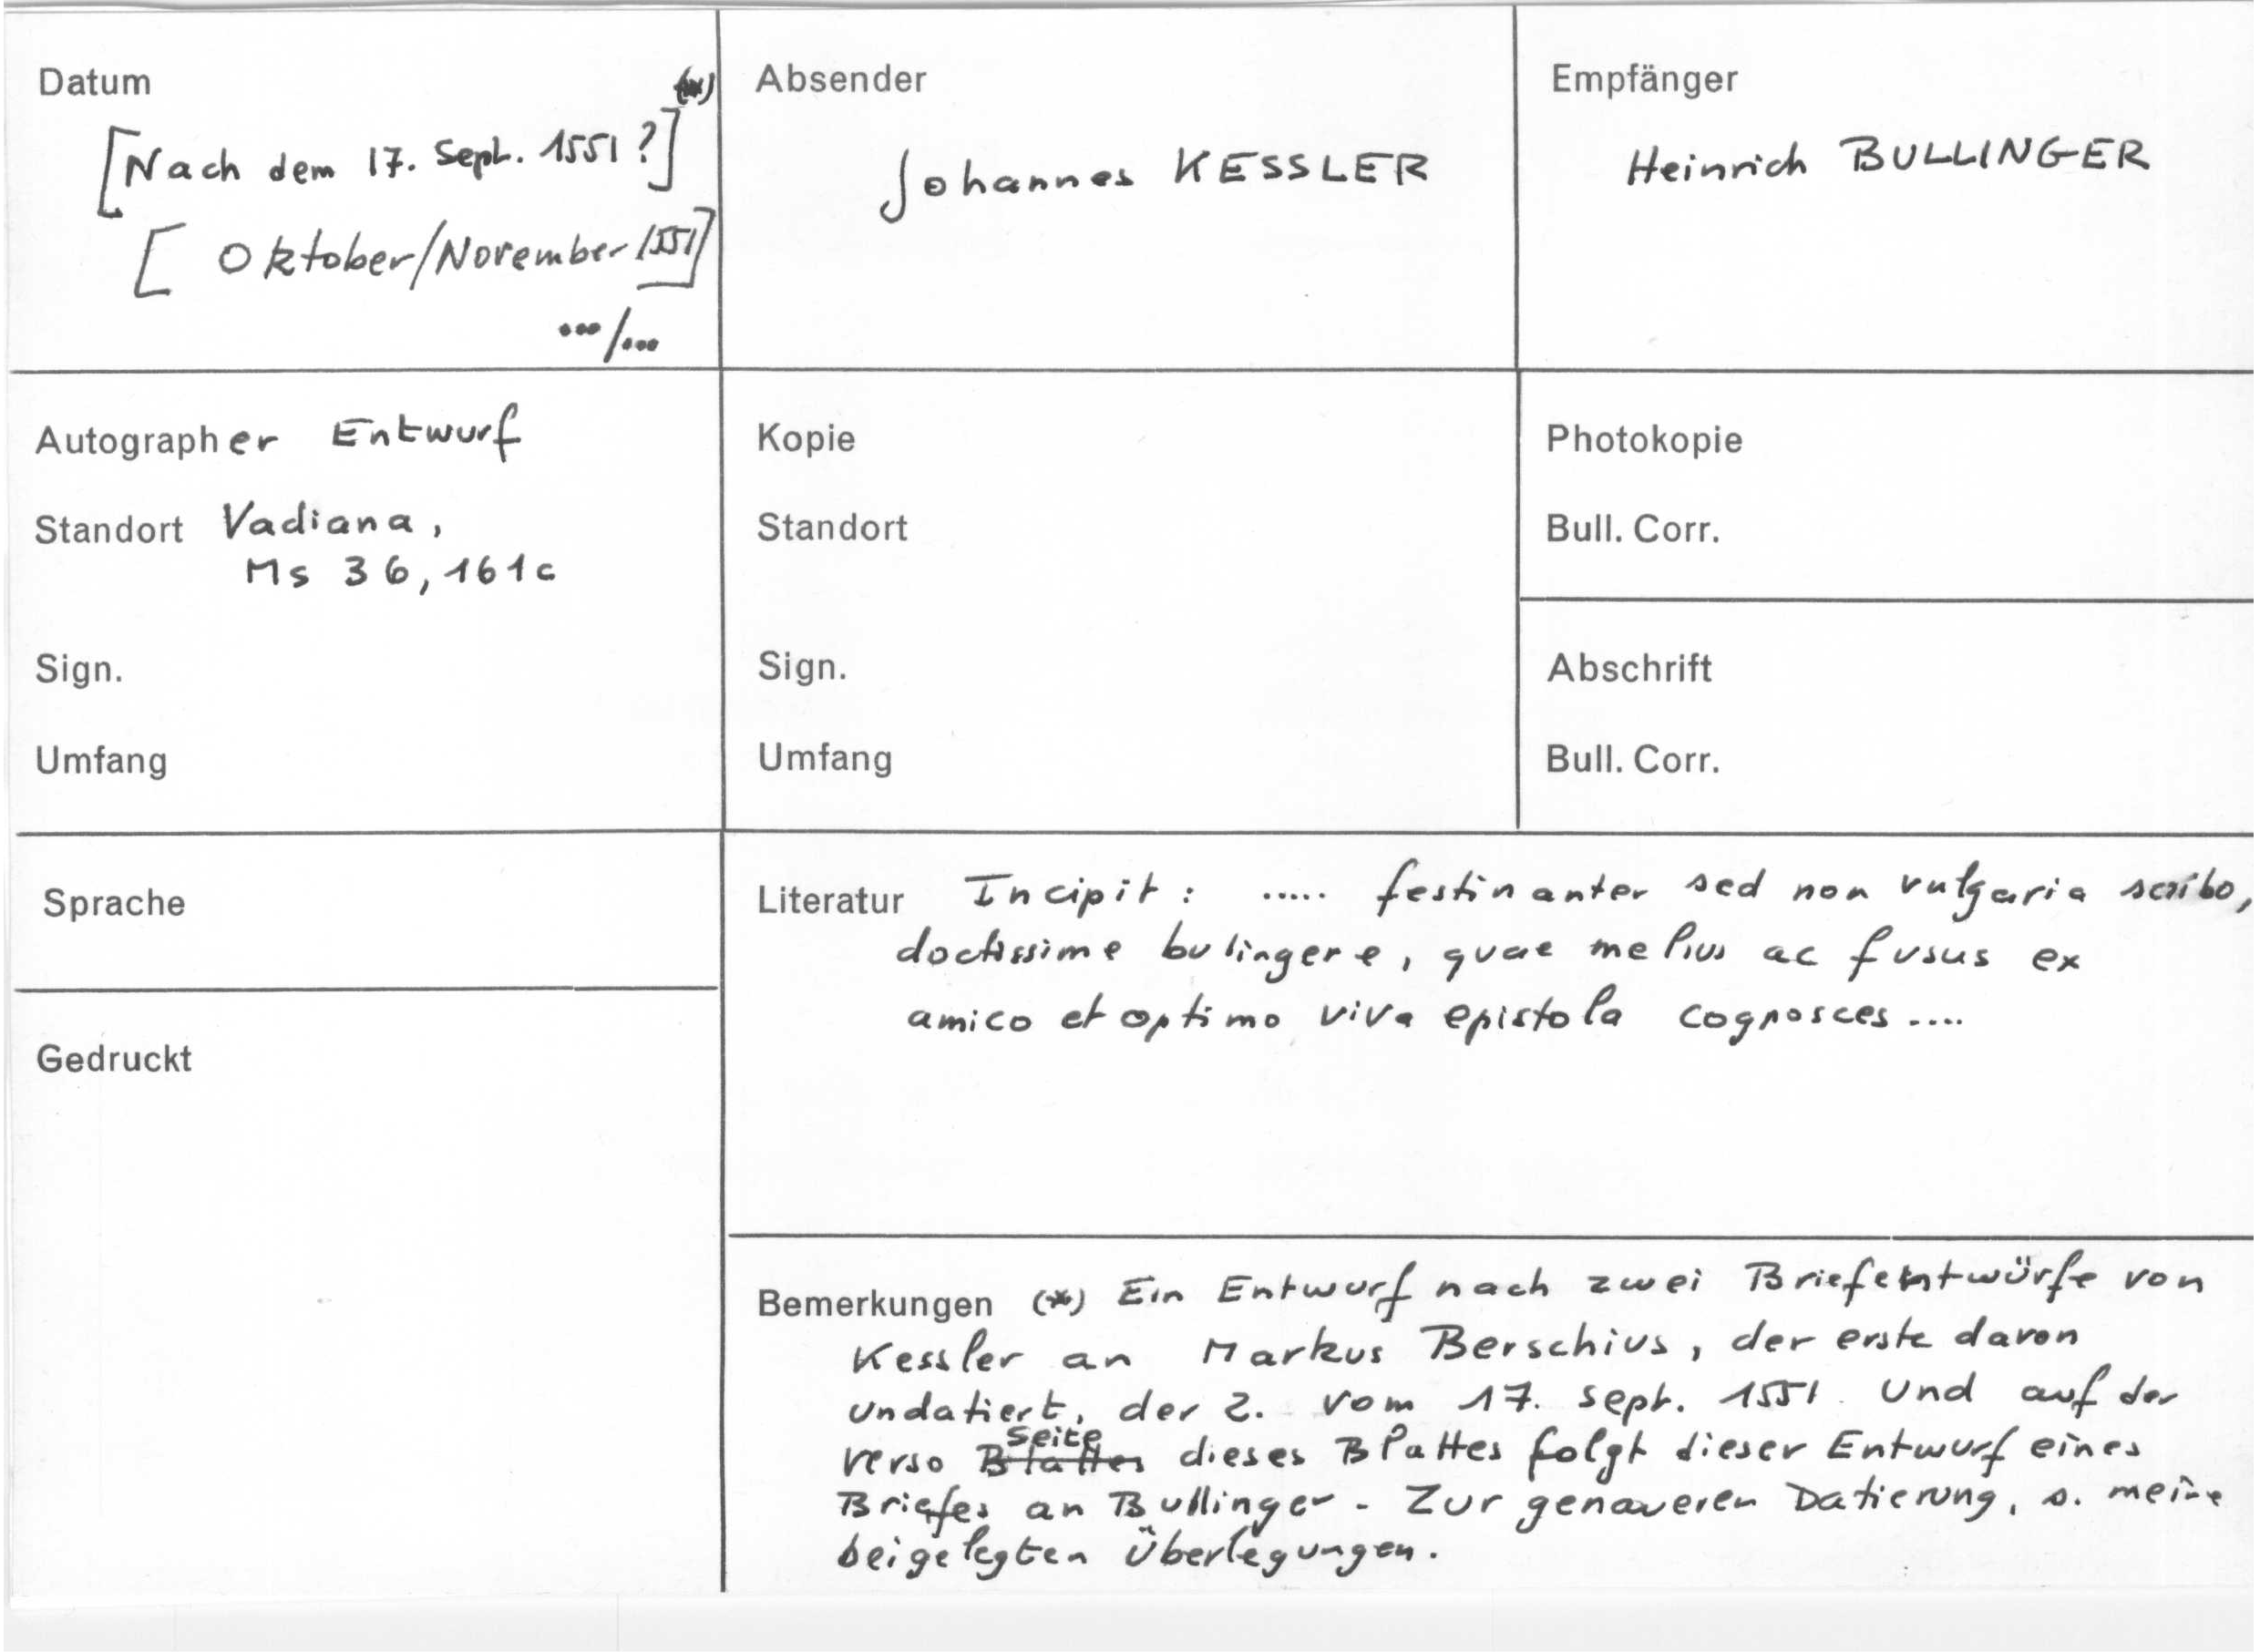 Datum (*)
[Nach dem 17. Sept. 1551?]
[Oktober/November 1551]
.../...
Absender
Johannes KESSLER
Empfänger
Heinrich BULLINGER
Autographer Entwurf
Standort Vadiana,
Ms 36, 161c
Sign.
Umfang
Kopie
Standort
Sign.
Umfang
Photokopie
Bull. Corr.
Abschrift
Bull. Corr.
Sprache
Gedruckt
Literatur Incipit: ..... festinanter sed non vulgaria scribo,
doctissime bulingere, quae melius ac fusus ex
amico et optimo viva epistola cognosces ....
Bemerkungen (*) Ein Entwurf nach zwei Briefentwürfe von
Kessler an Markus Berschius, der erste davon
undatiert, der 2. vom 17. sept. 1551. Und auf der
verso Blattes Seite dieses Blattes folgt dieser Entwurf eines
Briefes an Bullinger. Zur genaueren Datierung, s. meine
beigelegten Überlegungen.